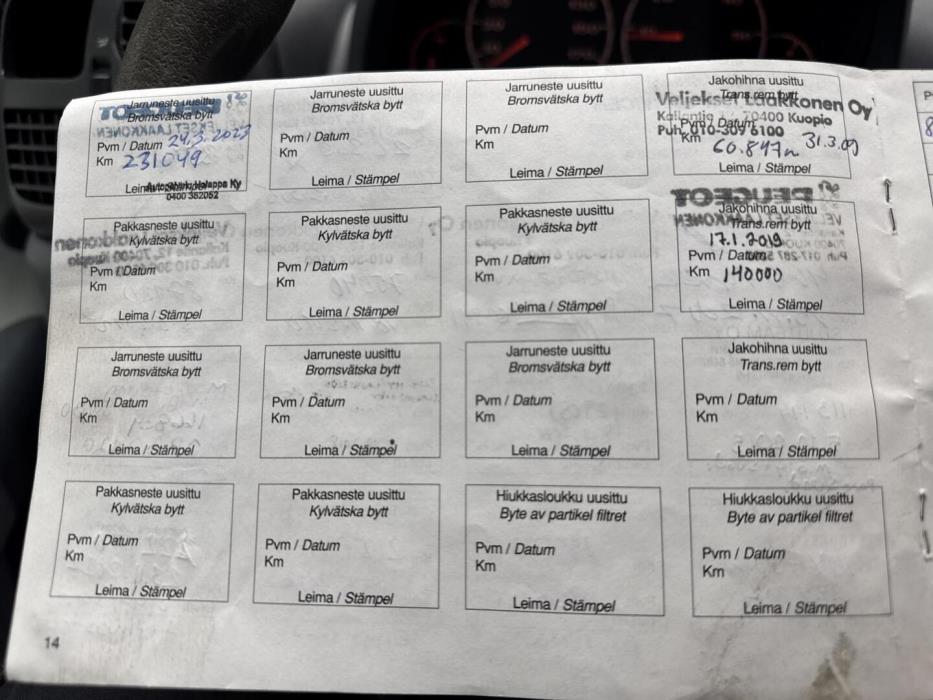 Jarruneste uusittu
Bromsvätska bytt
Pvm / Datum 24.3.2023
Km 231049
Leima / Stämpel
Holappa Ky
0400 382052
Jarruneste uusittu
Bromsvätska bytt
Pvm / Datum
Km
Leima / Stämpel
Jarruneste uusittu
Bromsvätska bytt
Pvm / Datum
Km
Leima / Stämpel
Jakohihna uusittu
Trans.rem bytt
Veljekset Laakkonen Oy
70400 Kuopio
Pvm / Datum 31.3.09
Puh. 010-309 6100
Km 60.847
Leima / Stämpel
Pakkasneste uusittu
Kylvätska bytt
Pvm / Datum
Km
Leima / Stämpel
Pakkasneste uusittu
Kylvätska bytt
Pvm / Datum
Km
Leima / Stämpel
Pakkasneste uusittu
Kylvätska bytt
Pvm / Datum
Km
Leima / Stämpel
PEUGEOT
Jakohihna uusittu
Trans.rem bytt
17.1.2019
Pvm / Datum
Km 140000
Leima / Stämpel
Jarruneste uusittu
Bromsvätska bytt
Pvm / Datum
Km
Leima / Stämpel
Jarruneste uusittu
Bromsvätska bytt
Pvm / Datum
Km
Leima / Stämpel
Jarruneste uusittu
Bromsvätska bytt
Pvm / Datum
Km
Leima / Stämpel
Jakohihna uusittu
Trans.rem bytt
Pvm / Datum
Km
Leima / Stämpel
Pakkasneste uusittu
Kylvätska bytt
Pvm / Datum
Km
Leima / Stämpel
Pakkasneste uusittu
Kylvätska bytt
Pvm / Datum
Km
Leima / Stämpel
Hiukkasloukku uusittu
Byte av partikel filtret
Pvm / Datum
Km
Leima / Stämpel
Hiukkasloukku uusittu
Byte av partikel filtret
Pvm / Datum
Km
Leima / Stämpel
14